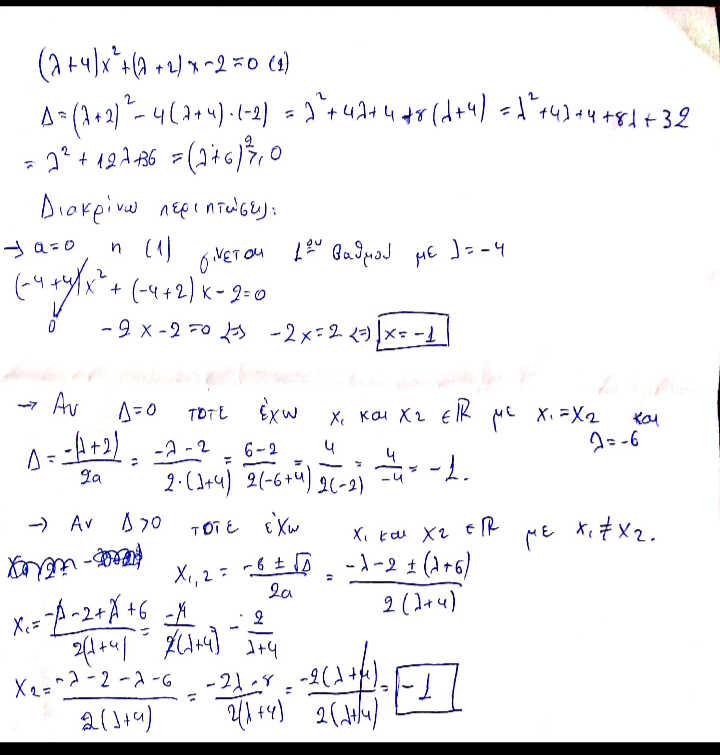 (λ+4)x²+(λ+2)x-2=0 (1)
Δ=(λ+2)²-4(λ+4)·(-2) = λ²+4λ+4+8(λ+4) = λ²+4λ+4+8λ+32
= λ²+12λ+36 = (λ+6)² ≥ 0
Διακρίνω περιπτώσεις:
→ a=0 η (1) γίνεται 1ου βαθμού με λ=-4
(-4+4)x²+(-4+2)x-2=0
0 -2x-2=0 <=> -2x=2 <=> x=-1
→ Αν Δ=0 τότε έχω x₁ και x₂ ∈ℝ με x₁=x₂ και
λ=-6
Δ = -(λ+2)/2a = -λ-2/2·(λ+4) = 6-2/2(-6+4) = 4/2(-2) = 4/-4 = -1.
→ Αν Δ>0 τότε έχω x₁ και x₂ ∈ℝ με x₁≠x₂.
x₁,₂ = -β±√Δ/2a = -λ-2±(λ+6)/2(λ+4)
x₁ = -λ-2+λ+6/2(λ+4) = -4/2(λ+4) = -2/λ+4
x₂ = -λ-2-λ-6/2(λ+4) = -2λ-8/2(λ+4) = -2(λ+4)/2(λ+4) = -1